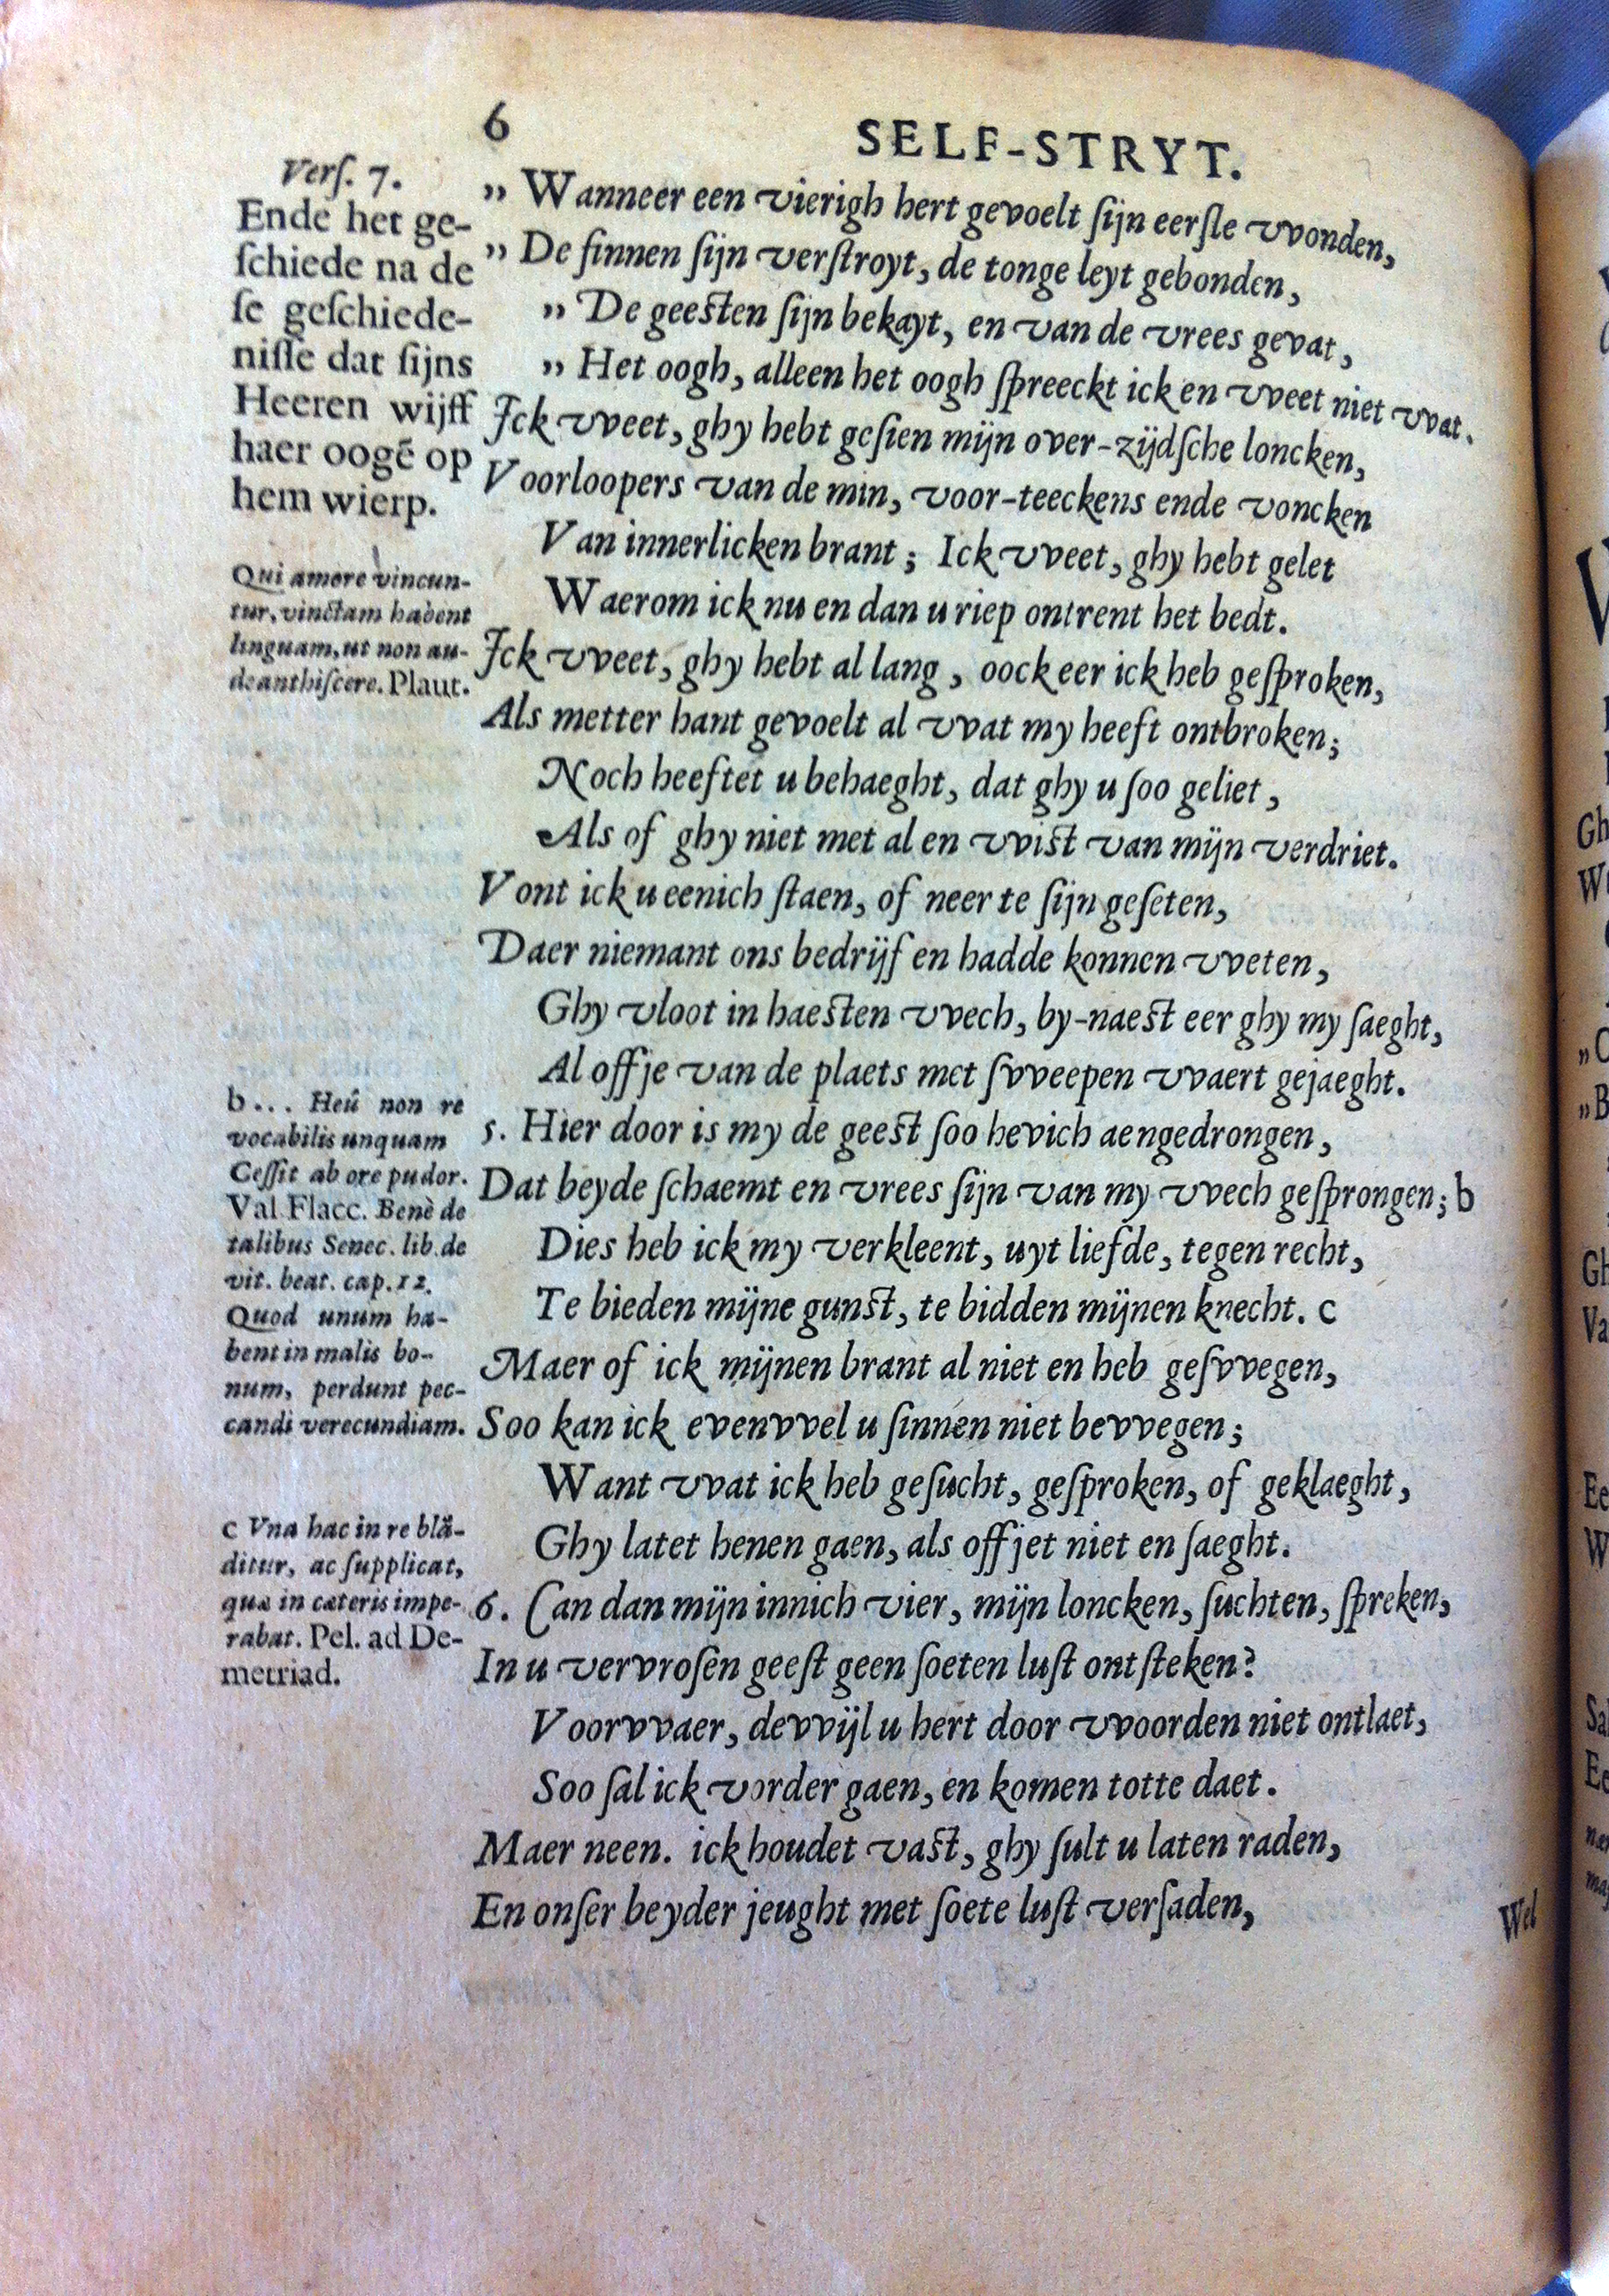 6
SELF-STRYT.
Verſ. 7.
Ende het ge-
ſchiede na de
ſe geſchiede-
niſſe dat ſijns
Heeren wijff
haer oogē op
hem wierp.
Qui amore vincun-
tur, vinctam habent
linguam, ut non au-
deant hiſcere. Plaut.
b... Heû non re
vocabilis unquam
Ceſſit ab ore pudor.
Val Flacc. Benè de
talibus Senec. lib. de
vit. beat. cap. 12.
Quod unum ha-
bent in malis bo-
num, perdunt pec-
candi verecundiam.
c Vna hac in re blā-
ditur, ac ſupplicat,
quæ in cæteris impe-
rabat. Pel. ad De-
metriad.
„ Wanneer een vierigh hert gevoelt ſijn eerſte vvonden,
„ De ſinnen ſijn verſtroyt, de tonge leyt gebonden,
„ De geeſten ſijn bekayt, en van de vrees gevat,
„ Het oogh, alleen het oogh ſpreeckt ick en vveet niet vvat.
Ick vveet, ghy hebt geſien mijn over-zijdſche loncken,
Voorloopers van de min, voor-teeckens ende voncken
Van innerlicken brant; Ick vveet, ghy hebt gelet
Waerom ick nu en dan u riep ontrent het bedt.
Ick vveet, ghy hebt al lang, oock eer ick heb geſproken,
Als metter hant gevoelt al vvat my heeft ontbroken;
Noch heeftet u behaeght, dat ghy u ſoo geliet,
Als of ghy niet met al en vviſt van mijn verdriet.
Vont ick u eenich ſtaen, of neer te ſijn geſeten,
Daer niemant ons bedrijf en hadde konnen vveten,
Ghy vloot in haeſten vvech, by-naeſt eer ghy my ſaeght,
Al offje van de plaets met ſvveepen vvaert gejaeght.
5. Hier door is my de geeſt ſoo hevich aengedrongen,
Dat beyde ſchaemt en vrees ſijn van my vvech geſprongen; b
Dies heb ick my verkleent, uyt liefde, tegen recht,
Te bieden mijne gunſt, te bidden mijnen knecht. c
Maer of ick mijnen brant al niet en heb geſvvegen,
Soo kan ick evenvvel u ſinnen niet bevvegen;
Want vvat ick heb geſucht, geſproken, of geklaeght,
Ghy latet henen gaen, als offjet niet en ſaeght.
6. Can dan mijn innich vier, mijn loncken, ſuchten, ſpreken,
In u vervroſen geeſt geen ſoeten luſt ontſteken?
Voorvvaer, devvijl u hert door vvoorden niet ontlaet,
Soo ſal ick vorder gaen, en komen totte daet.
Maer neen. ick houdet vaſt, ghy ſult u laten raden,
En onſer beyder jeught met ſoete luſt verſaden,
Wel